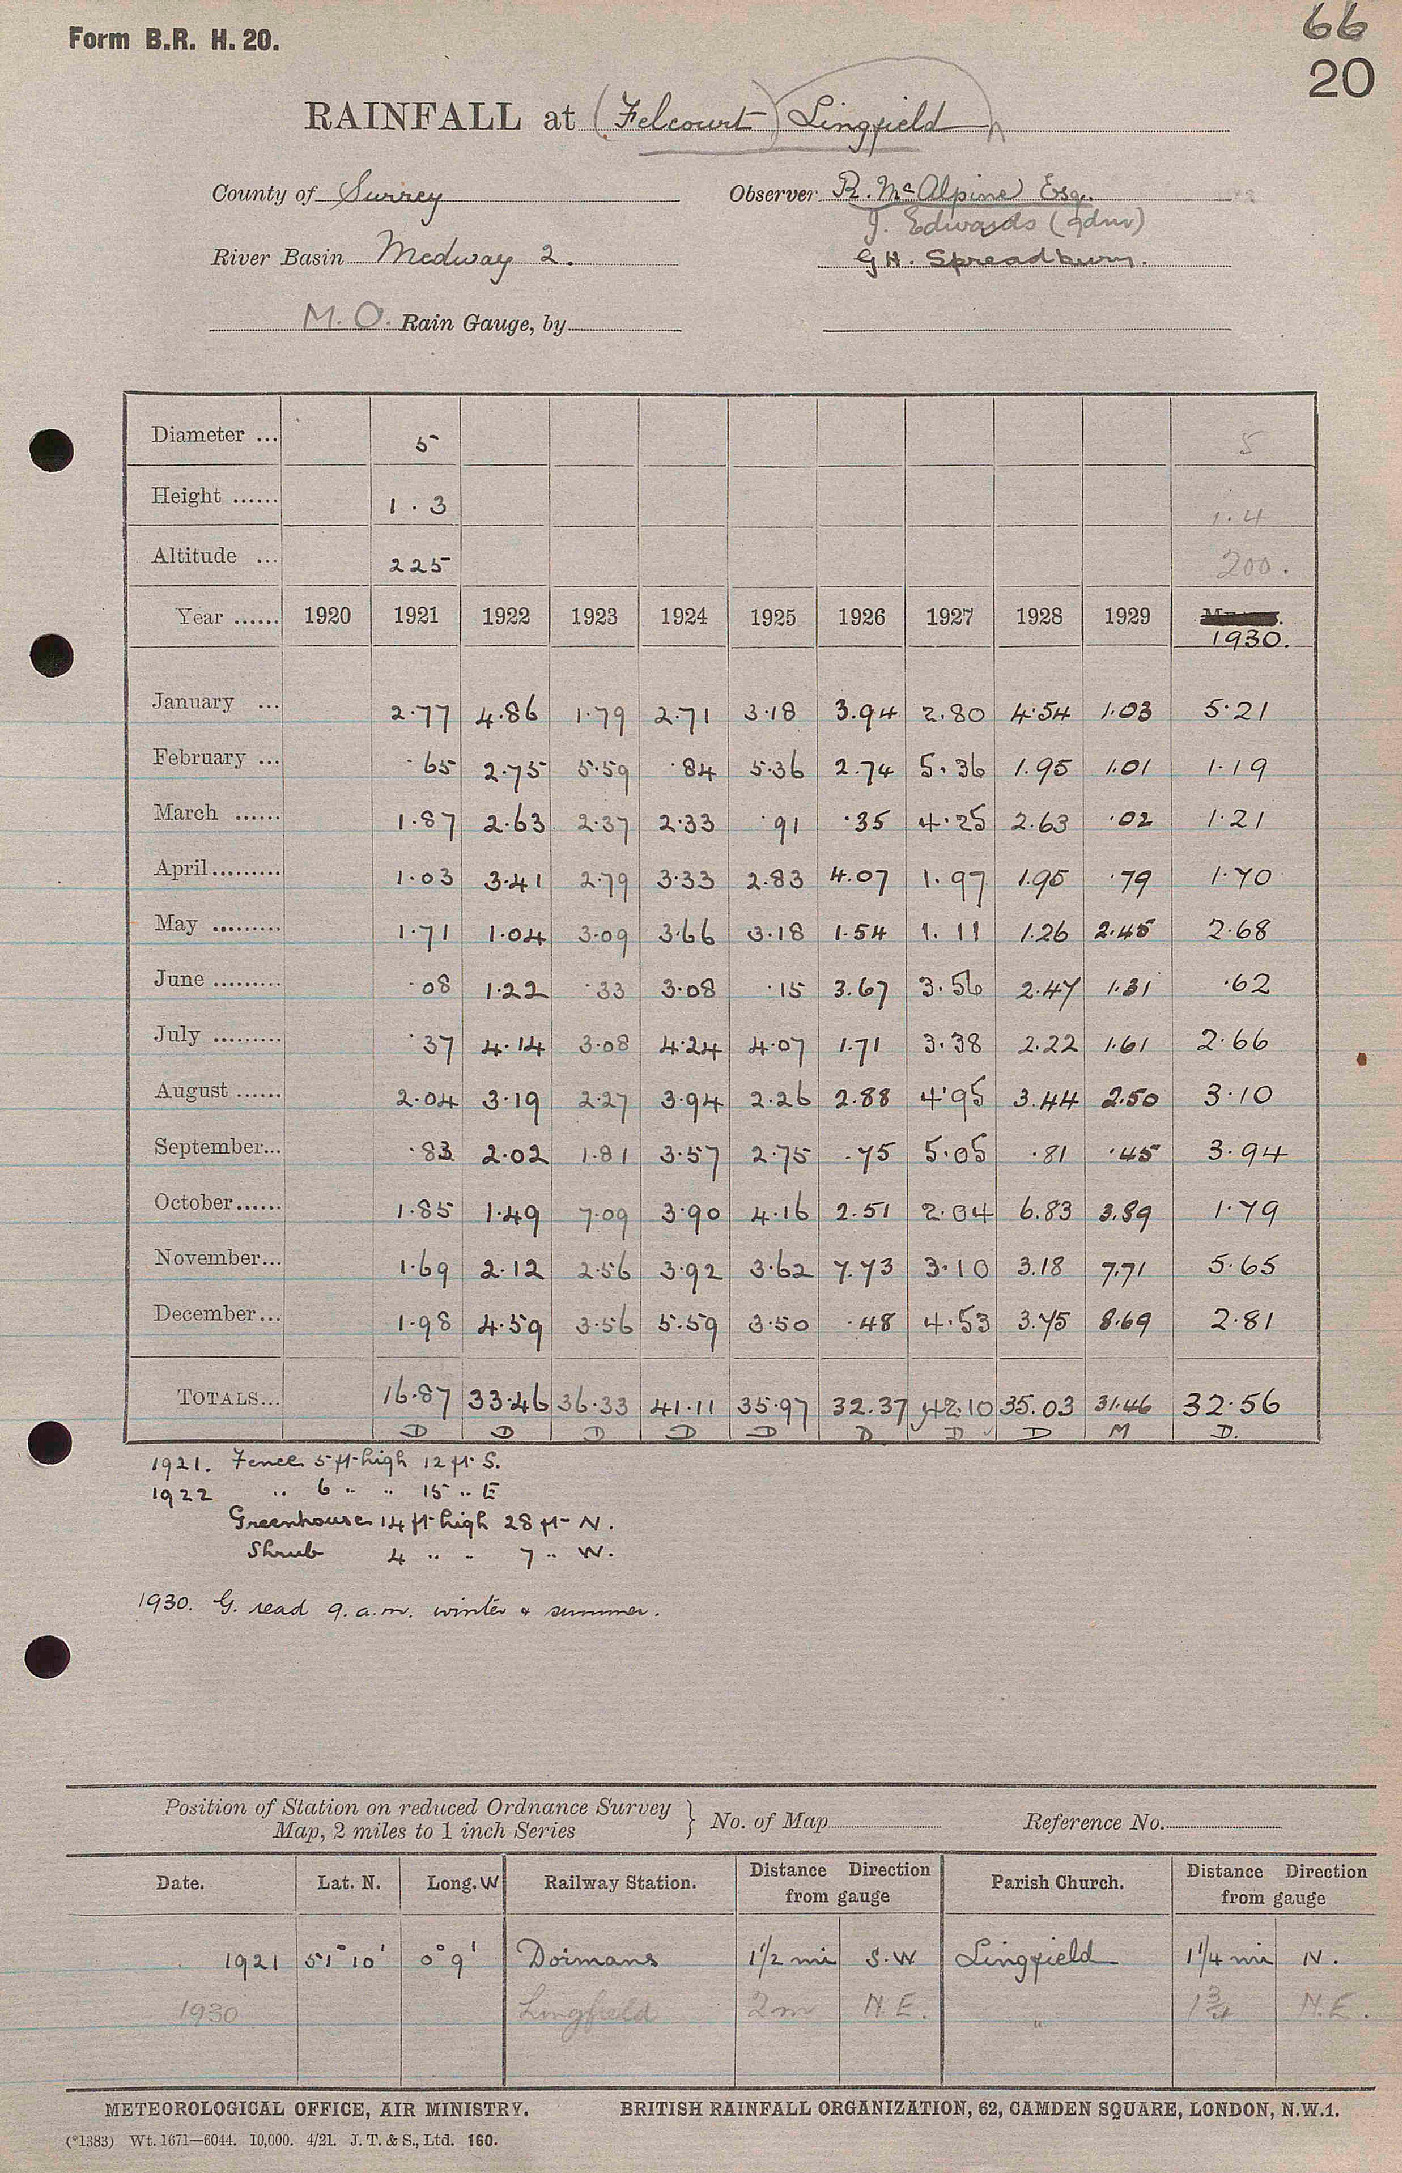 66
Form B.R. H. 20.
20
RAINFALL at (Felcourt) Lingfield
County of Surrey Observer R. McAlpine Esq.
J. Edwards (gdnr)
River Basin Medway 2. G H. Spreadbury.
M. O. Rain Gauge, by
Diameter ... 5 5
Height ...... 1.3 1.4
Altitude ... 225 200.
Year ...... 1920 1921 1922 1923 1924 1925 1926 1927 1928 1929 1930.
January ... 2.77 4.86 1.79 2.71 3.18 3.94 2.80 4.54 1.03 5.21
February ... .65 2.75 5.59 .84 5.36 2.74 5.36 1.95 1.01 1.19
March ...... 1.87 2.63 2.37 2.33 .91 .35 4.25 2.63 .02 1.21
April ......... 1.03 3.41 2.79 3.33 2.83 4.07 1.97 1.95 .79 1.70
May ......... 1.71 1.04 3.09 3.66 3.18 1.54 1.11 1.26 2.45 2.68
June ......... .08 1.22 .33 3.08 .15 3.67 3.56 2.47 1.31 .62
July ......... .37 4.14 3.08 4.24 4.07 1.71 3.38 2.22 1.61 2.66
August ...... 2.04 3.19 2.27 3.94 2.26 2.88 4.95 3.44 2.50 3.10
September... .83 2.02 1.81 3.57 2.75 .75 5.05 .81 .45 3.94
October...... 1.85 1.49 7.09 3.90 4.16 2.51 2.04 6.83 3.89 1.79
November... 1.69 2.12 2.56 3.92 3.62 7.73 3.10 3.18 7.71 5.65
December... 1.98 4.59 3.56 5.59 3.50 .48 4.53 3.75 8.69 2.81
TOTALS... 16.87 33.46 36.33 41.11 35.97 32.37 42.10 35.03 31.46 32.56
D D D D D D D D M D.
1921. Fence 5 ft high 12 ft S.
1922 " 6 " " 15 " E
Greenhouses 14 ft high 28 ft N.
Shrub 4 " " 7 " W.
1930. G. read 9.a.m. winter & summer.
Position of Station on reduced Ordnance Survey Map, 2 miles to 1 inch Series } No. of Map Reference No.
Date. Lat. N. Long. W Railway Station. Distance Direction from gauge Parish Church. Distance Direction from gauge
1921 51° 10' 0° 9' Dormans 1 1/2 mi S.W Lingfield 1 1/4 mi N.
1930 Lingfield 2 m N.E. " 1 3/4 N.E.
METEOROLOGICAL OFFICE, AIR MINISTRY. BRITISH RAINFALL ORGANIZATION, 62, CAMDEN SQUARE, LONDON, N.W.1.
(*1383) Wt. 1671—6044. 10,000. 4/21. J. T. & S., Ltd. 160.